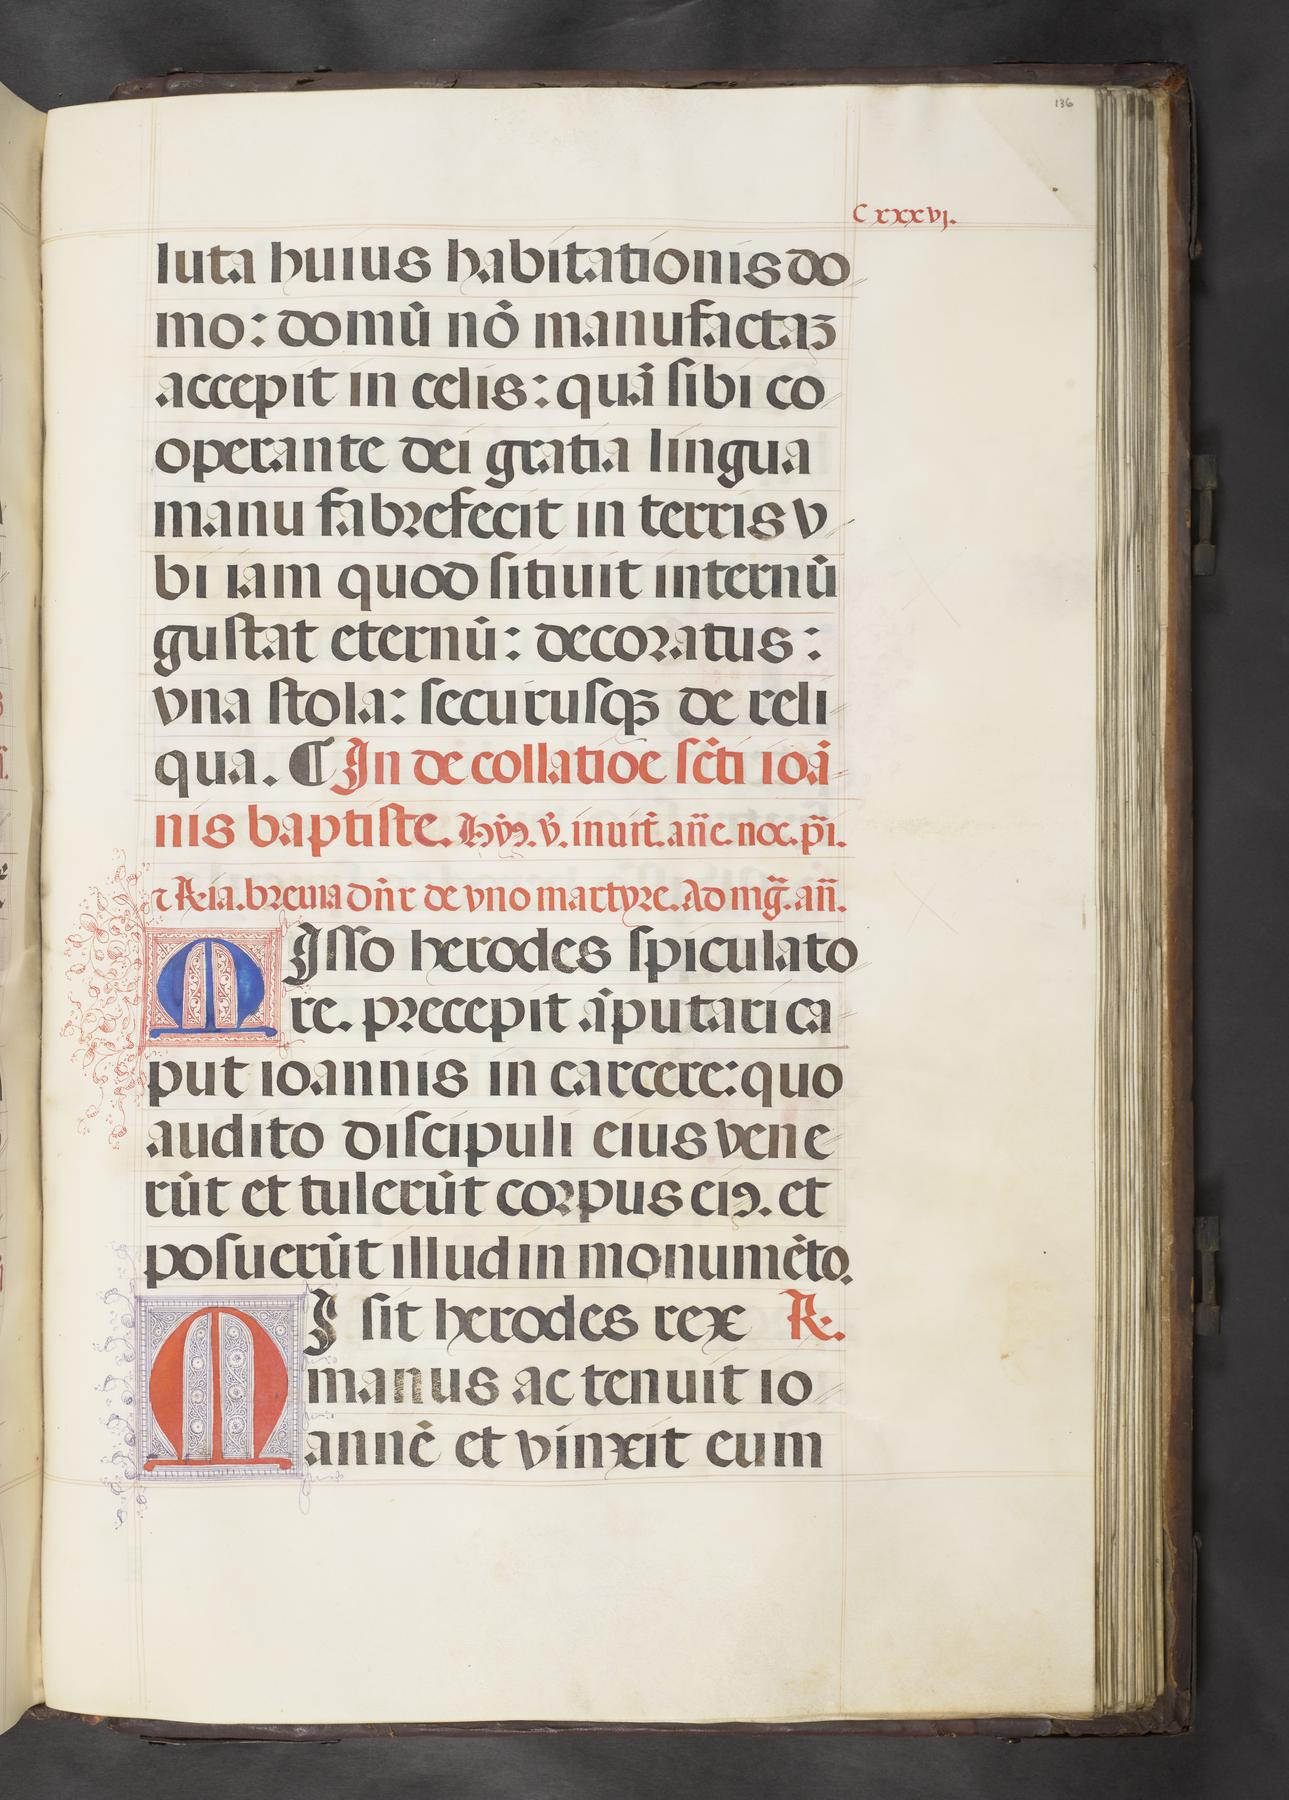 136
C xxxvj.
luta huius habitationis do
mo: domū nō manufactaꝫ
accepit in celis: quā sibi co
operante dei gratia lingua
manu fabrefecit in terris v
bi iam quod sitiuit internū
gustat eternū: decoratus:
vna stola: securusqꝫ de reli
qua. ¶ In de collatioe sc̄ti ioā
nis baptiste. Hyꝰ. v̄. inuit̄. an̄e. noc. p̄i.
⁊ R̄ia. breuia dn̄r de vno martyre. Ad mḡ. an̄.
MIsso herodes spiculato
re. precepit āputari ca
put ioannis in carcere: quo
audito discipuli eius vene
rūt et tulerūt corpus eiꝰ. et
posuerūt illud in monumēto.
MI sit herodes rex R.
manus ac tenuit io
annē et vinxit eum